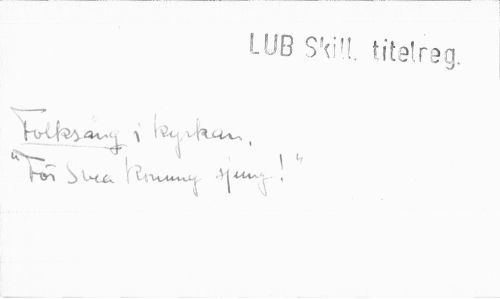 LUB Skill. titelreg.
Folksång i kyrkan.
"För Svea Konung sjung!"